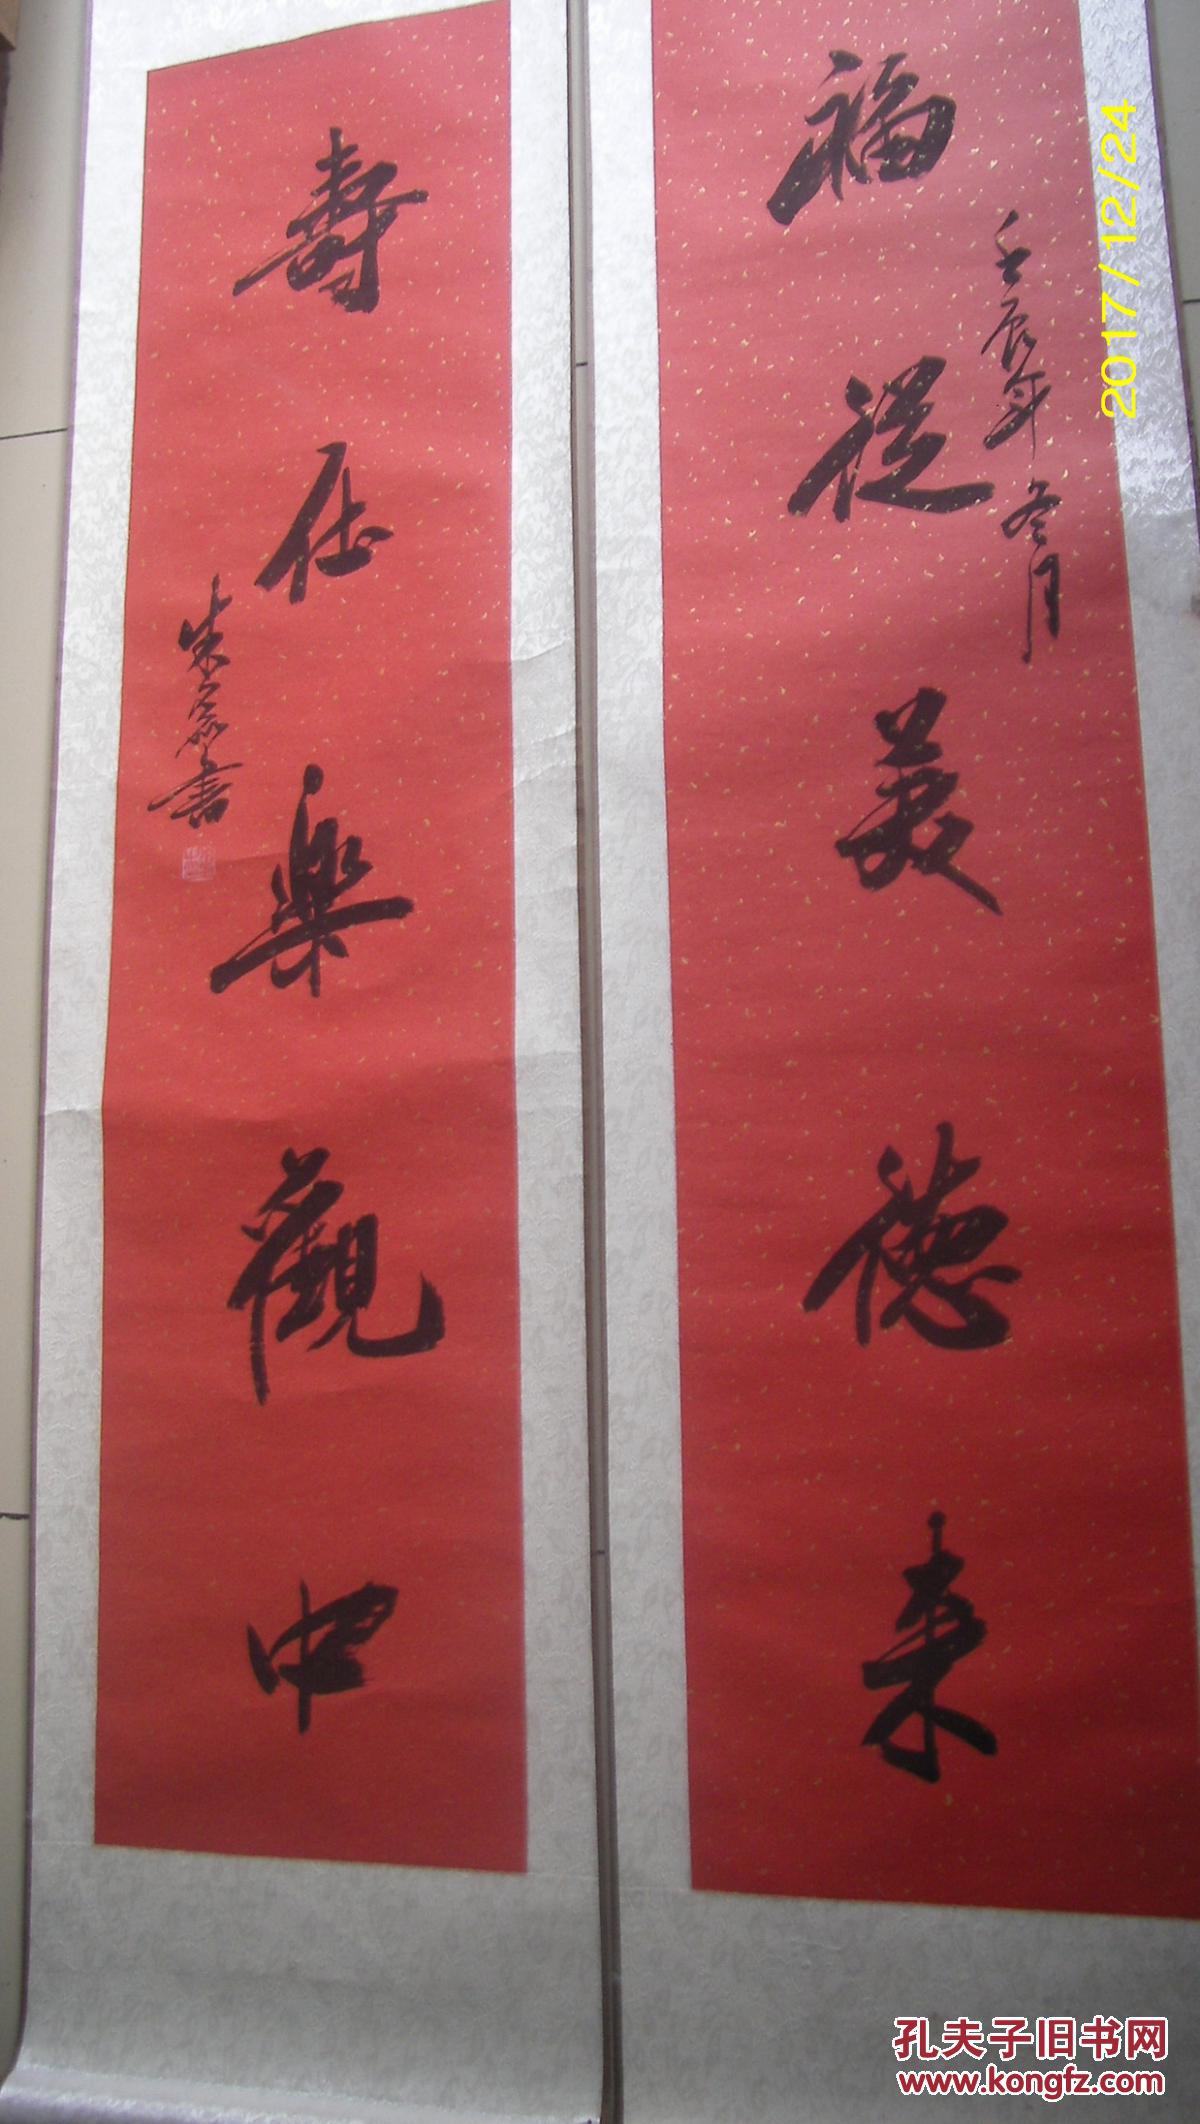 福從美德来
壬辰年冬月
壽在樂觀中
2017/12/24
孔夫子旧书网
www.kongfz.com